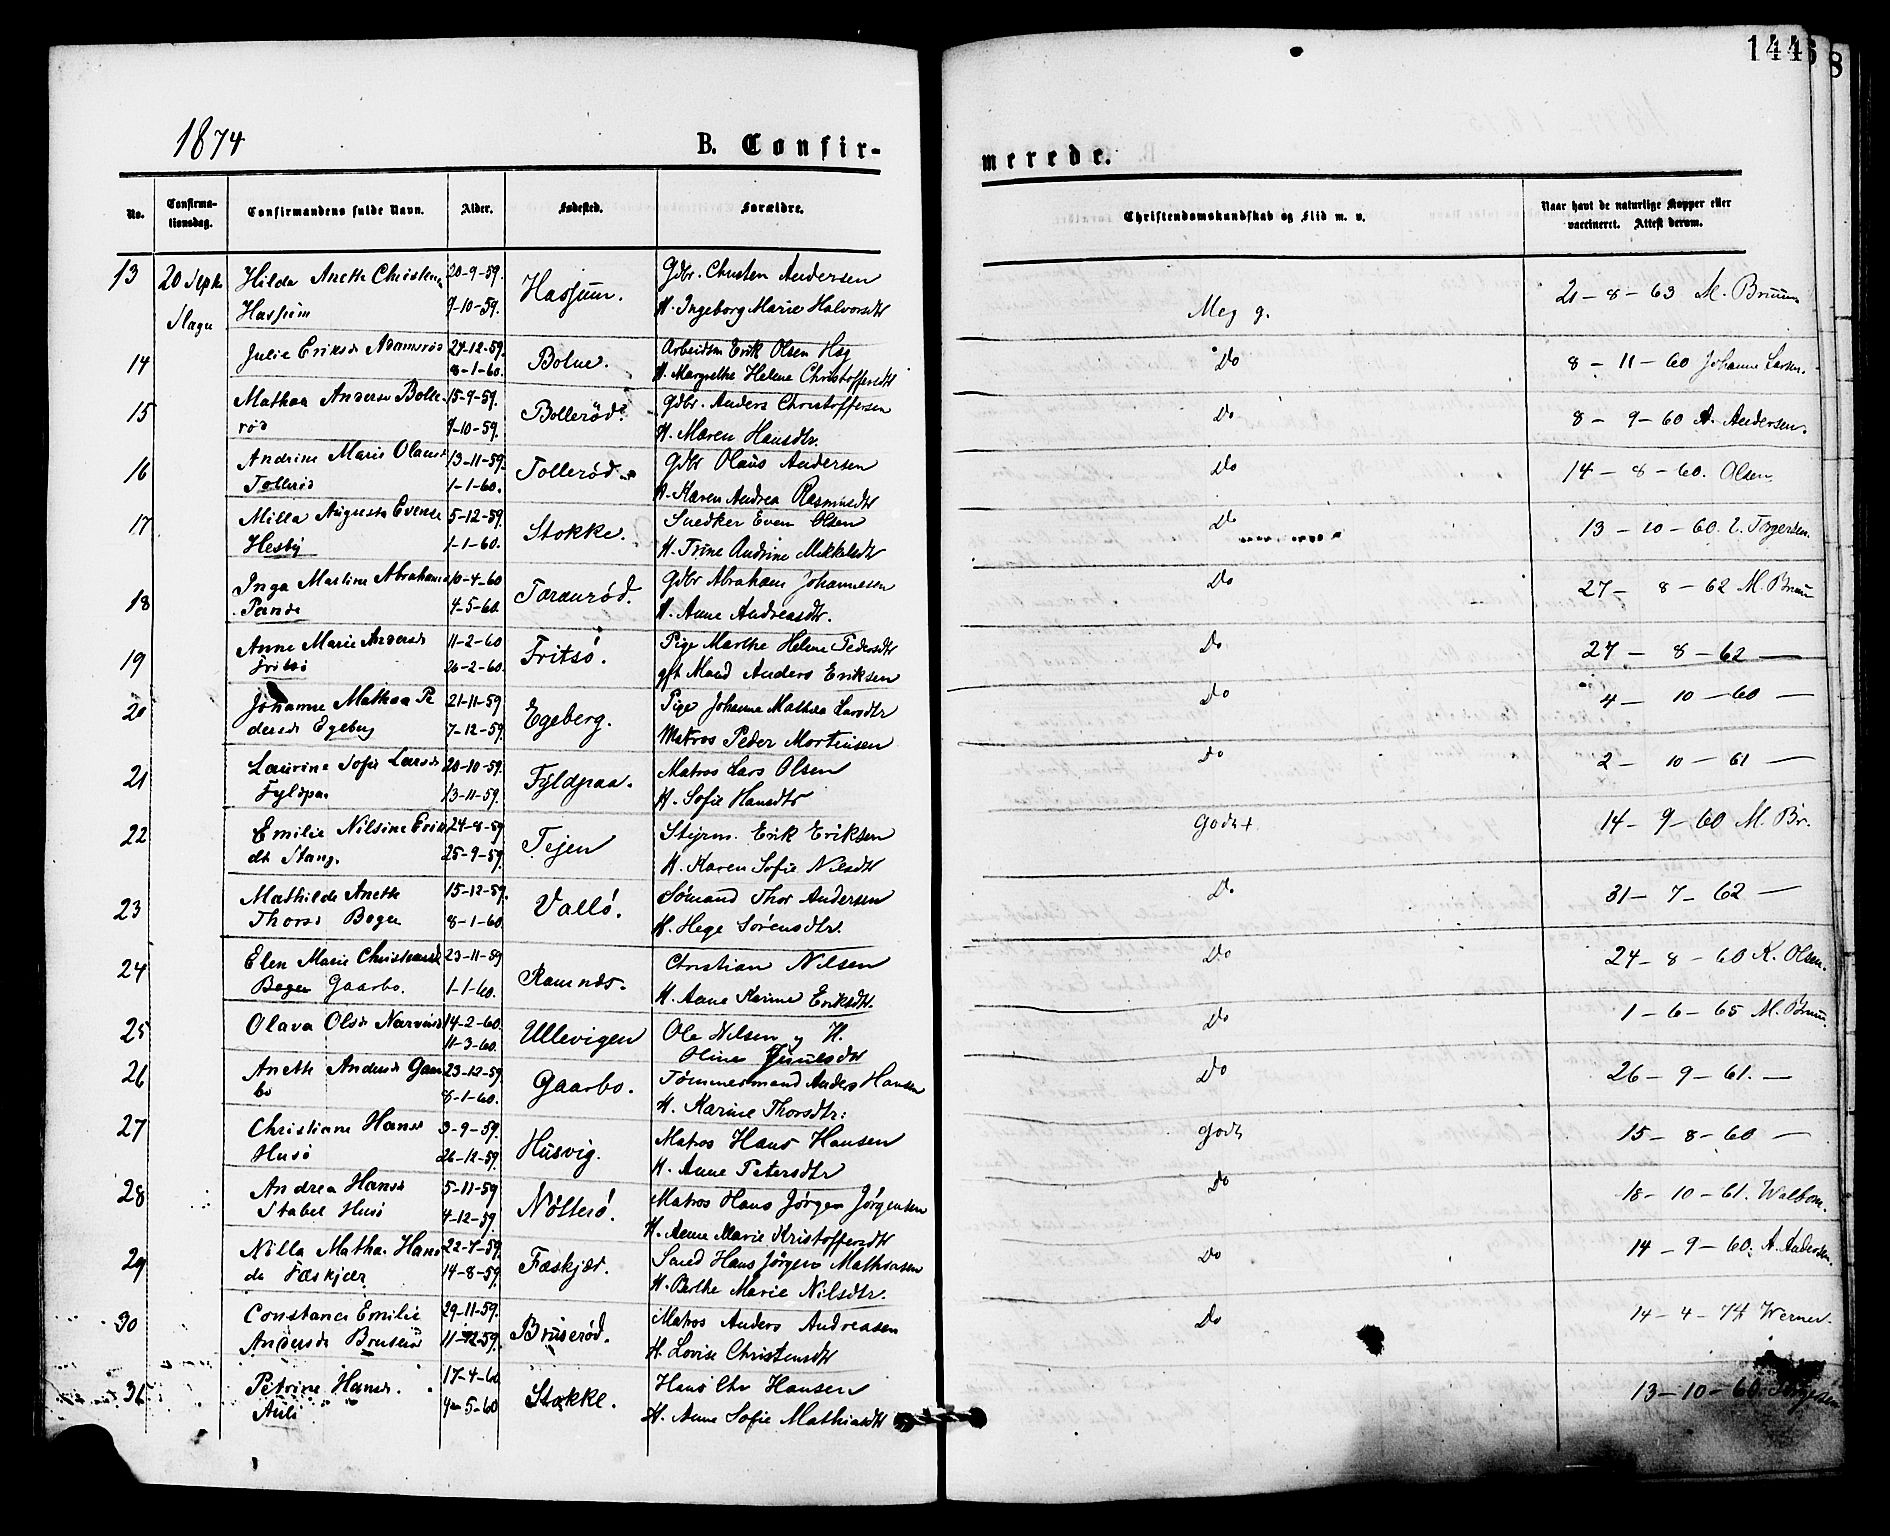 1446 8
1874
B. Confir-
merede.
No.
Confirma-
tionsdag.
Confirmandens fulde Navn.
Alder.
Fødested.
Forældre.
Christendomskundskab og Flid m. v.
Naar havt de naturlige Kopper eller
vaccineret. Attest derom.
13 20 Sept. Hilda Anette Christens 20-9-59. Hassum. Gdbr. Christen Andersen
Slagn Hassum 9-10-59. H. Ingeborg Marie Halvorsdtr
Meg g. 21-8-63 M. Bruun
14 Julie Eriksd Adamsrød 27-12-59. Bolne. Arbeidsm Erik Olsen Hsg
8-1-60. H. Margrethe Helene Christoffersdtr
Do 8-11-60 Johanne Larsen.
15 Mathea Andersd Bolle- 15-9-59. Bollerød Gdbr. Anders Christoffersen
rød 9-10-59. H. Maren Hansdtr.
Do 8-9-60 A. Andersen.
16 Andrine Marie Olausd 13-11-59. Tollerød Gdbr Olaus Andersen
Tollerød 1-1-60. H. Karen Andrea Rasmusdtr
Do 14-8-60. Olsen
17 Milla Augusta Evensd 5-12-59. Stokke. Snedker Even Olsen
Hesby 1-1-60. H. Trine Andrine Mikkelsdtr
Do 13-10-60. Torgersen.
18 Inga Martine Abrahams 10-4-60 Taranrød. Gdbr Abraham Johannesen
Rande 4-5-60. H. Anne Andreasdtr.
Do 27-8-62 M. Bruun
19 Anne Marie Andersd 11-2-60 Fritsø. Pige Marthe Helene Pedersdtr
Fritsø 26-2-60. gft Mand Anders Eriksen
Do 27-8-62 —
20 Johanne Mathea Pe 21-11-59 Egeberg. Pige Johanne Mathea Larsdtr
dersd Egeberg 7-12-59. Matros Peder Mortensen
Do 4-10-60 —
21 Laurine Sofie Larsd 20-10-59. Fyldpaa. Matros Lars Olsen
Fyldpaa 13-11-59. H. Sofie Hansdtr
Do 2-10-61 —
22 Emilie Nilsine Eriks 24-8-59 Tejen Styrm. Erik Eriksen
dt Stang. 25-9-59. H. Karen Sofie Nilsdtr
Godt + 14-9-60 M. Br.
23 Mathilde Anette 15-12-59. Vallö. Sömand Thor Andersen
Thorsd Bogen 8-1-60 H. Hege Sörensdtr.
Do 31-7-62 —
24 Elen Marie Christiansd 23-11-59 Ramnes. Christian Nilsen
Bogen Gaarbo. 1-1-60. H. Anne Karine Eriksdtr.
Do 24-8-60 K. Olsen.
25 Olava Olsd 14-2-60. Ullevigen Ole Nilsen og H.
11-3-60. Oline
Do 1-6-65 M. Bruun.
26 Anette Andersd Gaar 23-12-59 Gaarbo. Tømmermand Anders Hansen
bo 8-1-60. H. Karine Thorsdtr.
Do 26-9-61. —
27 Christiane Hansd 3-9-59. Husvig. Matros Hans Hansen
Husö 26-12-59. H. Anne Petersdtr
Godt 15-8-60 —
28 Andrea Hansd 5-11-59 Nötterö. Matros Hans Jörgen Jörgensen
Stabel Husö 4-12-59. H. Anne Marie Kristoffersdtr
Do 18-10-61. Walbom.
29 Nilla Mathea Hans 22-7-59. Fæskjær. Hans Jörgen Mathiasen
dt Fæskjær 14-8-59. H. Berthe Marie Nilsdtr.
Do 14-9-60. A. Andersen.
30 Constance Emilie 29-11-59. Bruserød. Matros Anders Andreasen
Andersd Bruserød 11-12-59. H. Lovise Christensdtr
Do 14-4-74 Werner.
31 Petrine Hansd. 17-4-60 Stokke. Hans Chr Hansen
Auli 4-5-60 H. Anne Sofie Mathiasdtr
13-10-60. Torgersen